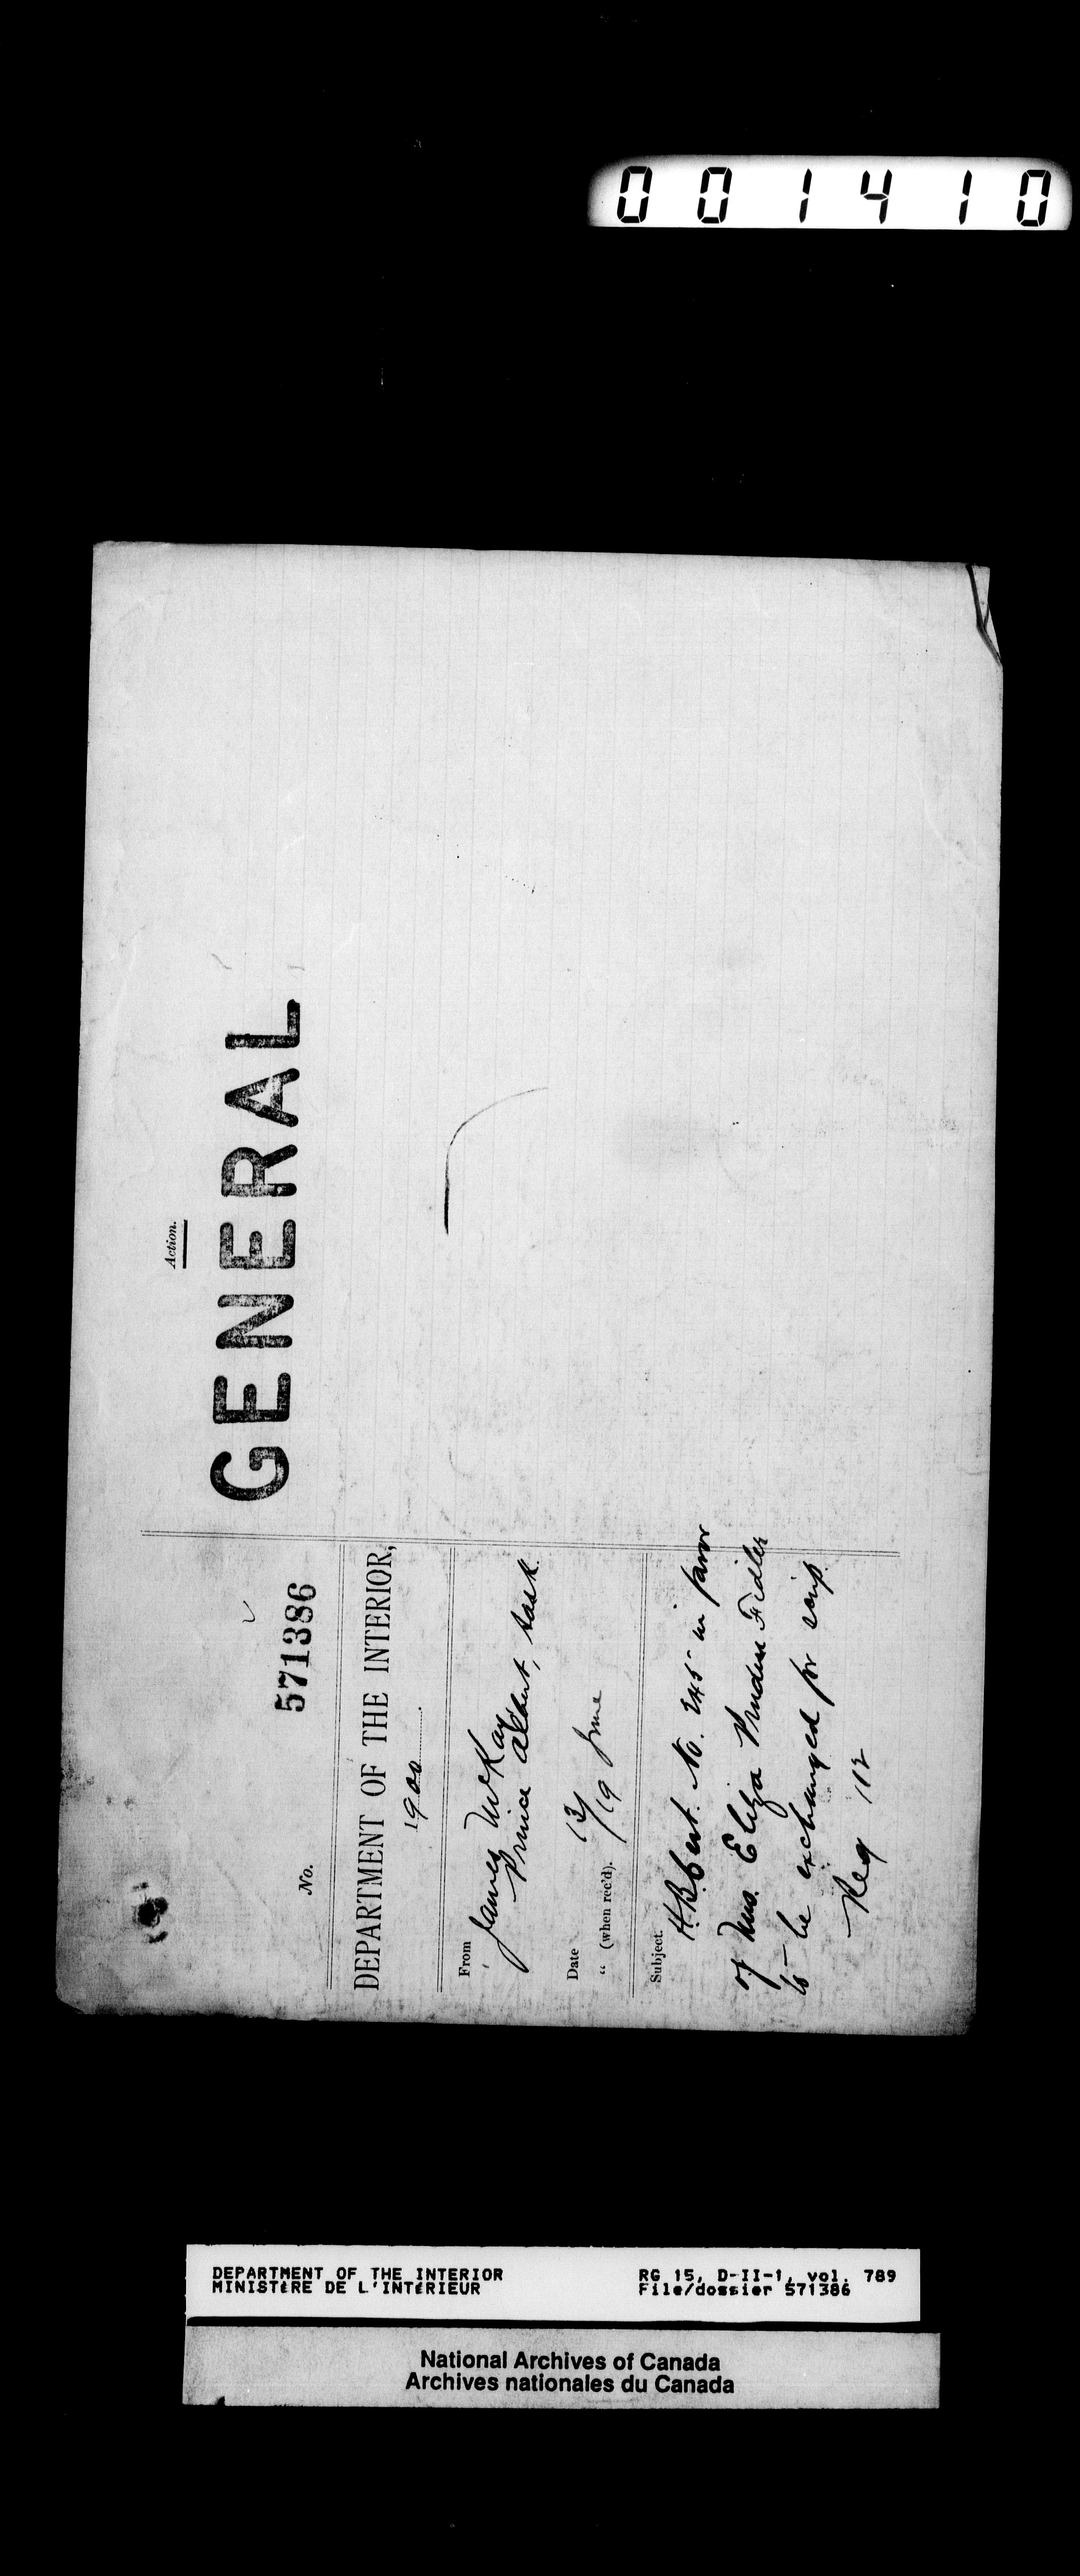 001410
Action.
GENERAL
No. 571386
DEPARTMENT OF THE INTERIOR,
1900
From James McKay
Prince Albert, Sask.
Date 13/
" (when rec'd). /19 June
Subject.
H.B. Cert. No. 245 in favor
of Mrs. Eliza Pruden Fidler
to be exchanged for scrip.
Reg 112
DEPARTMENT OF THE INTERIOR
MINISTÈRE DE L'INTÉRIEUR
RG 15, D-II-1, vol. 789
File/dossier 571386
National Archives of Canada
Archives nationales du Canada